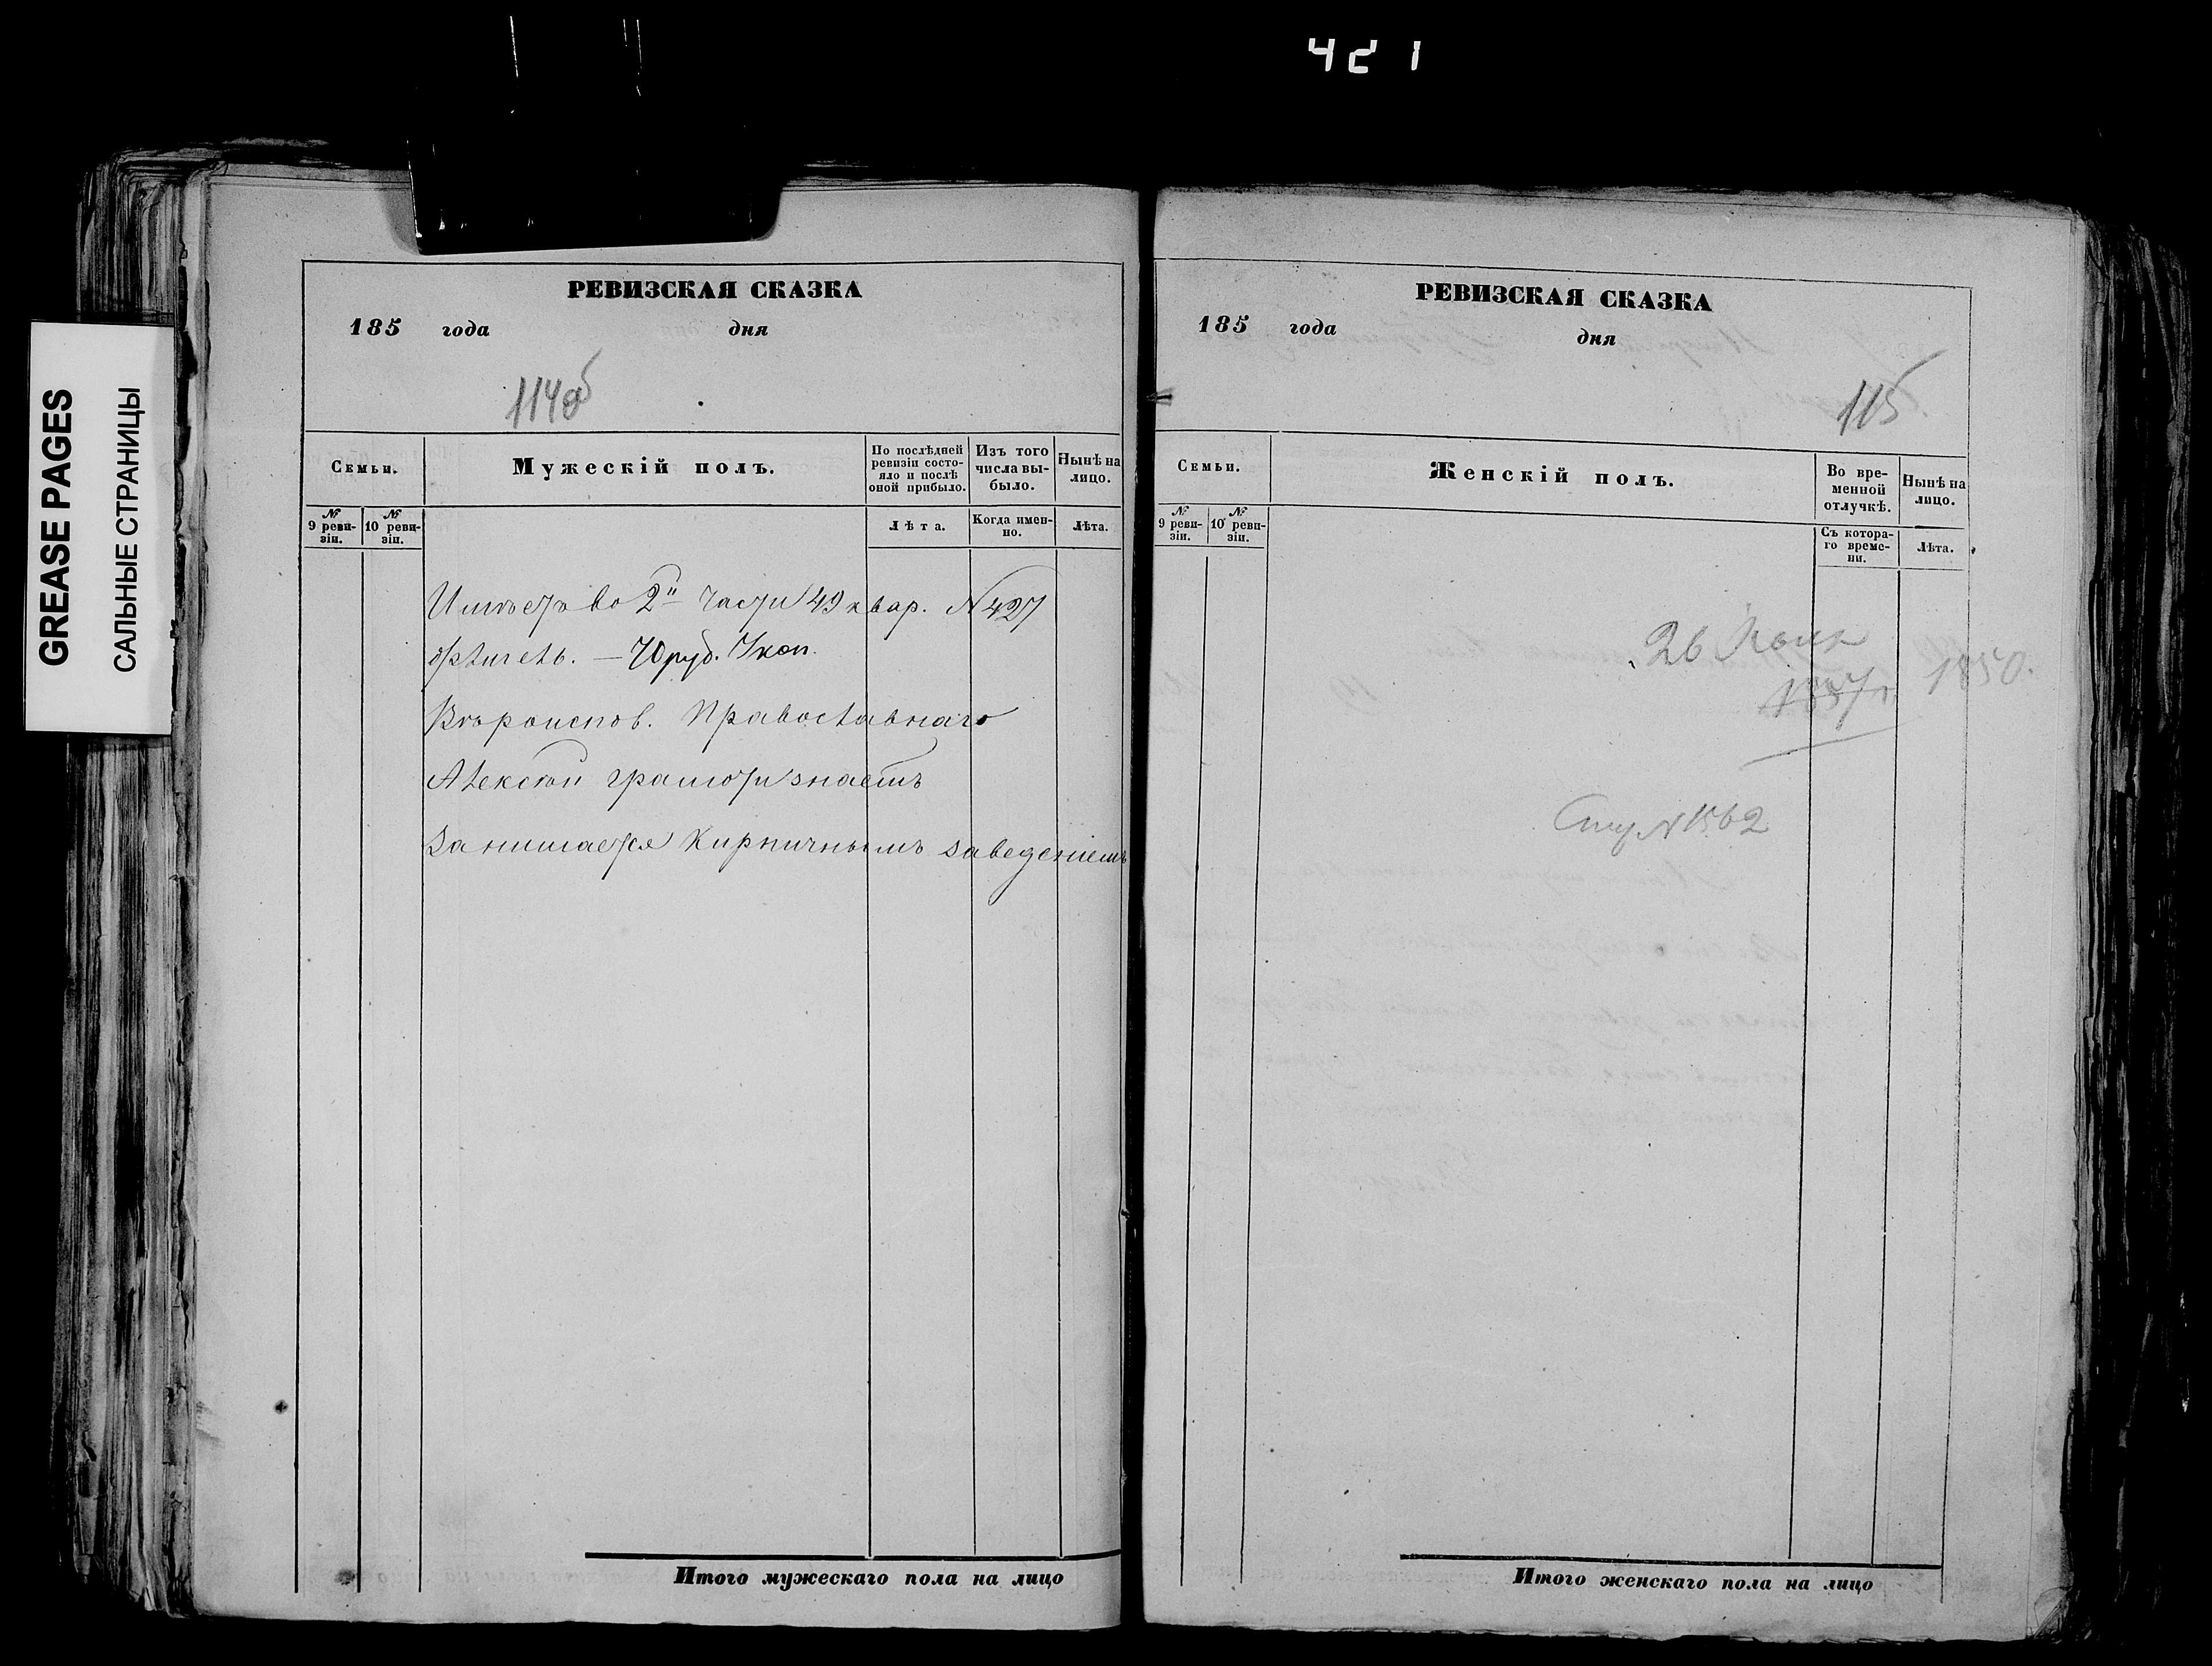 421
GREASE PAGES
САЛЬНЫЕ СТРАНИЦЫ
РЕВИЗСКАЯ СКАЗКА
185 года дня
114об
Семьи.
Мужескій полъ.
По послѣдней ревизіи состо-
яло и послѣ
оной прибыло.
Изъ того
числа вы-
было.
Нынѣ на
лицо.
№ 9 реви-
зіи.
№ 10 реви-
зіи.
Лѣта.
Когда имен-
но.
Лѣта.
Имѣетъ во 2й части 49 квар. N 427
70 руб. коп.
Вѣроиспов. Православнаго
Алексѣй грамоти знаетъ
Занимается Кирпичнымъ заведеніемъ
Итого мужескаго пола на лицо
РЕВИЗСКАЯ СКАЗКА
185 года дня
115
Семьи.
Женскій полъ.
Во вре-
менной
отлучкѣ.
Нынѣ на
лицо.
№ 9 реви-
зіи.
№ 10 реви-
зіи.
Съ котора-
го време-
ни.
Лѣта.
26
1850.
N 1562
Итого женскаго пола на лицо